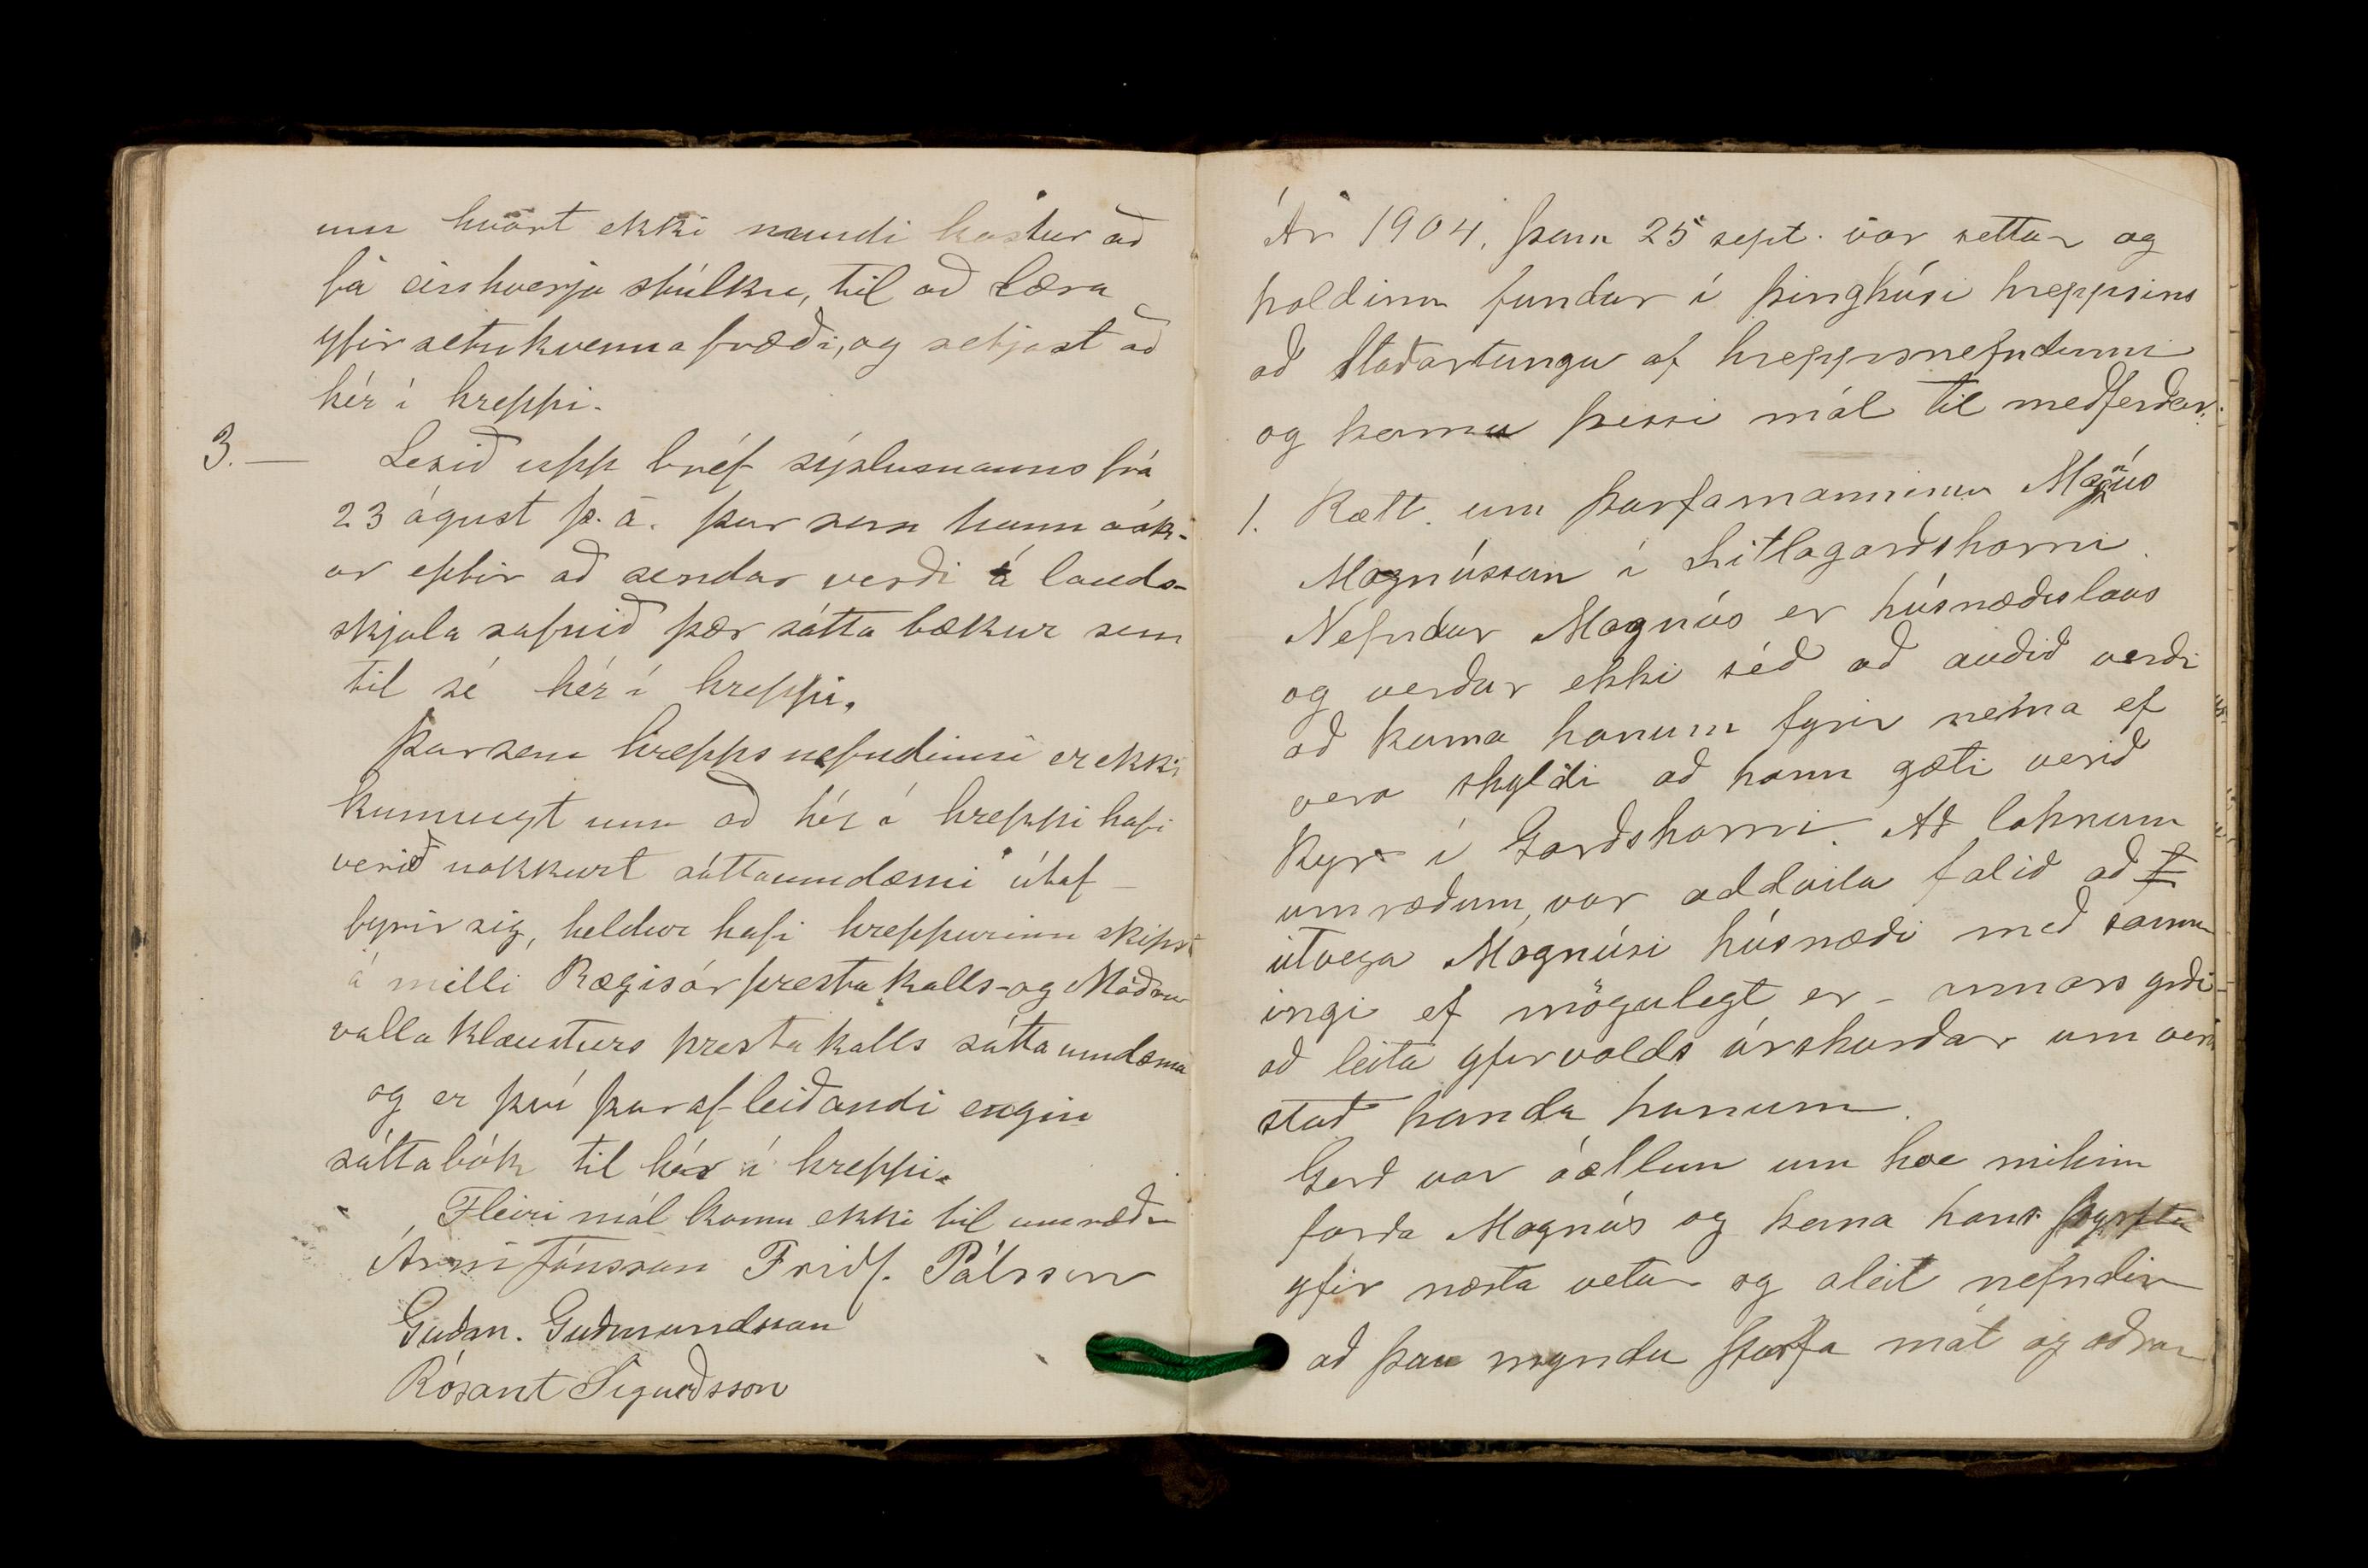 um hvort ekki mundi kostur að
fá einhverja stúlku, til að læra
yfirsetukvennafræði, og setjast að
hér í hreppi.
3. — Lesið upp bréf sýslumanns frá
23 ágúst þ. á. þar sem hann ósk-
ar eptir að sendar verði á lands-
skjala safnið þær sátta bækur sem
til sé hér í hreppi.
Þar sem hreppsnefndinni er ekki
kunnugt um að hér í hreppi hafi
verið nokkurt sáttaumdæmi útaf
fyrir sig, heldur hafi hreppurinn skipst
á milli Bægisár prestakalls- og Möðru
valla klausturs prestakalls sáttaumdæma
og er því þar af leiðandi engin
sáttabók til hér í hreppi.
Fleiri mál komu ekki til umræðu
Árni Jónsson Friðf. Pálsson
Guðm. Guðmundsson
Rósant Sigurðsson
Ár 1904, þann 25 sept. var settur og
haldinn fundur í þinghúsi hreppsins
að Staðartungu af hreppsnefndinni
og komu þessi mál til meðferðar:
1. Rætt um þurfamanninn Magnús
Magnússon í Litlagarðshorni.
Nefndur Magnús er húsnæðislaus
og verður ekki séð að auðið verði
að koma honum fyrir nema ef
vera skyldi að hann gæti verið
kyr í Garðshorni. Að loknum
umræðum, var oddvita falið að
útvega Magnúsi húsnæði með samn
ingi ef mögulegt er - annars
að leita yfirvalds úrskurðar um veru
stað handa honum.
Gerð var áætlun um hve mikinn
forða Magnús og kona hans þyrftu
yfir næsta vetur og áleit nefndin
að þau myndu þurfa mat og aðrar